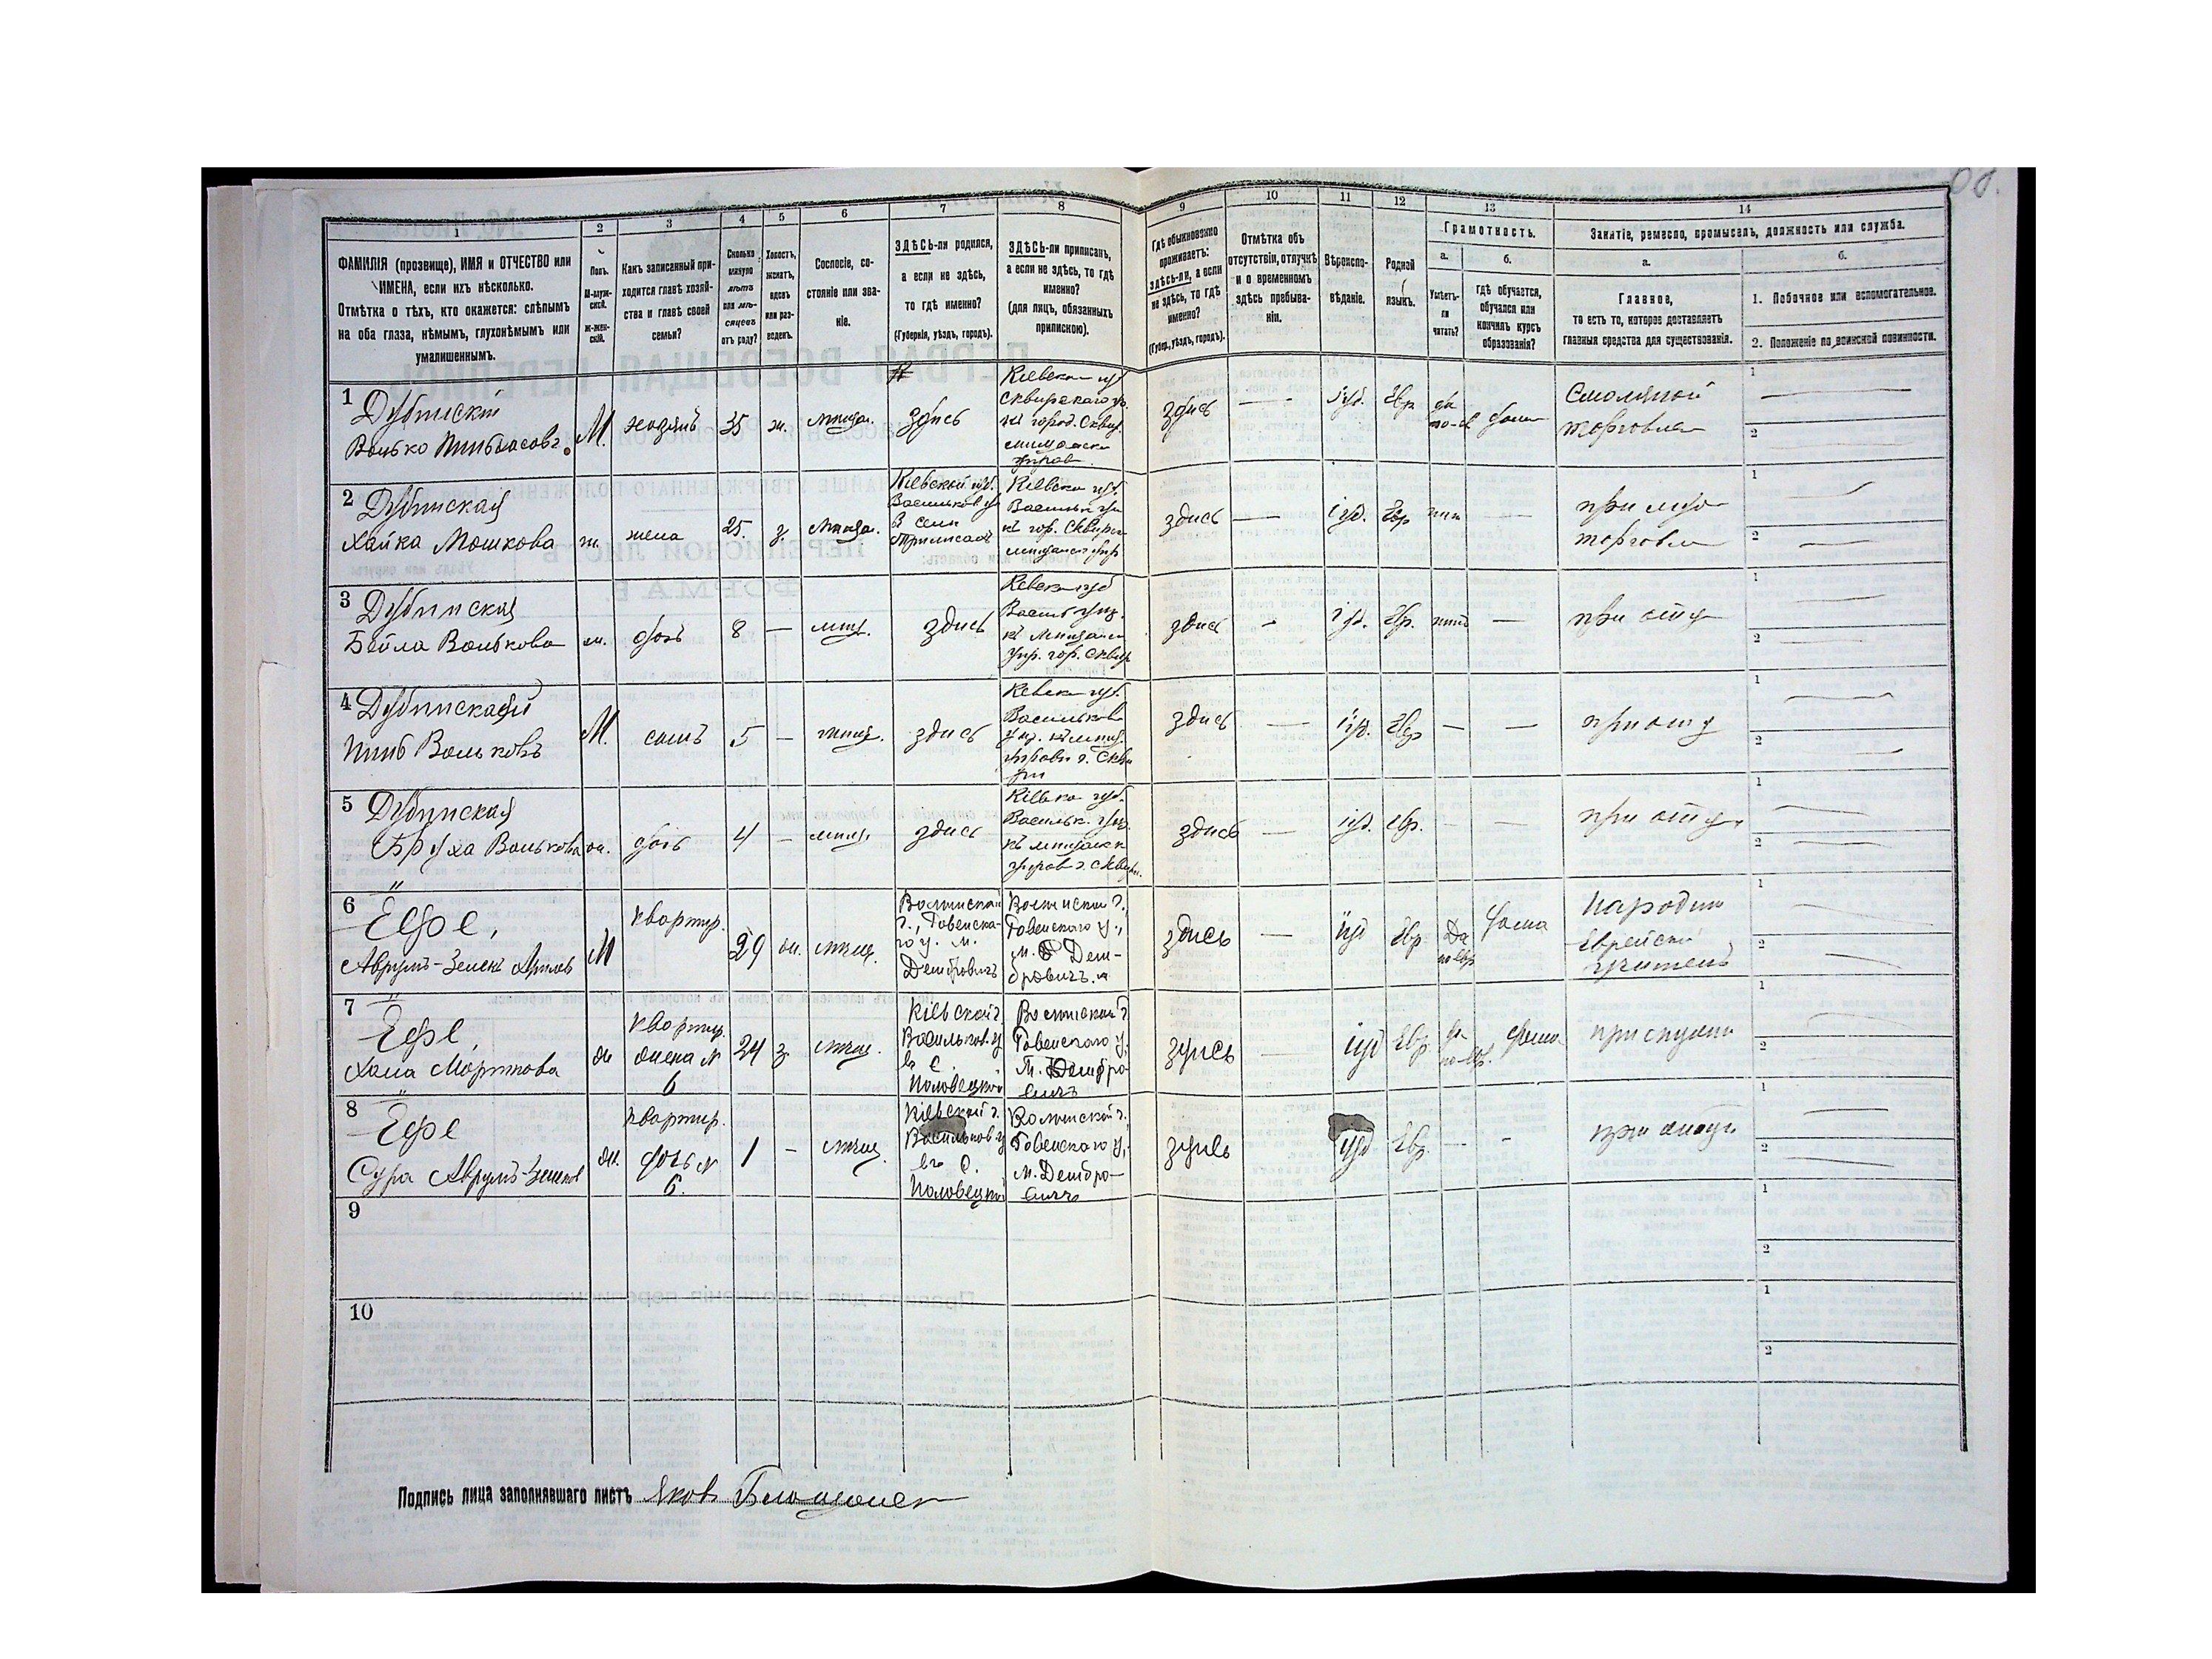 1 2 3 4 5 6 7 8 9 10 11 12 13 14
ФАМИЛІЯ (прозвище), ИМЯ и ОТЧЕСТВО или
ИМЕНА, если ихъ нѣсколько.
Отмѣтка о тѣхъ, кто окажется: слѣпымъ
на оба глаза, нѣмымъ, глухонѣмымъ или
умалишеннымъ.
Полъ.
М-муж-
ской.
Ж-жен-
скій.
Какъ записанный при-
ходится главѣ хозяй-
ства и главѣ своей
семьи?
Сколько
минуло
лѣтъ
или мѣ-
сяцевъ
отъ роду?
Холостъ,
женатъ,
вдовъ
или раз-
веденъ.
Сословіе, со-
стояніе или зва-
ніе.
ЗДѢСЬ-ли родился,
а если не здѣсь,
то гдѣ именно?
(Губернія, уѣздъ, городъ).
ЗДѢСЬ-ли приписанъ,
а если не здѣсь, то гдѣ
именно?
(для лицъ, обязанныхъ
припискою).
Гдѣ обыкновенно
проживаетъ:
здѣсь-ли, а если
не здѣсь, то гдѣ
именно?
(Губер., уѣздъ, городъ).
Отмѣтка объ
отсутствіи, отлучкѣ
и о временномъ
здѣсь пребыва-
ніи.
Вѣроиспо-
вѣданіе.
Родной
языкъ.
Грамотность.
а.
Умѣетъ-
ли
читать?
б.
гдѣ обучается,
обучался или
кончилъ курсъ
образованія?
Занятіе, ремесло, промыселъ, должность или служба.
а.
Главное,
то есть то, которое доставляетъ
главныя средства для существованія.
б.
1. Побочное или вспомогательное.
2. Положеніе по воинской повинности.
1 Дубинскій
Волько Пинькасовъ
М. хозяинъ 35 ж. мѣщан. здѣсь
Кіевской губ
Сквирскаго у.
къ город. Сквир.
мѣщанск
управ
здѣсь — іуд. Евр да
дома
Смоляной
торговля
1
2
2 Дубинская
Хайка Мошкова
ж. жена 25. з. мѣщан.
Кіевской губ.
Васильков у
в селѣ
Трилисахъ
Кіевско губ.
Василь уѣз
къ гор. Сквиры
мѣщанск упр
здѣсь — іуд. Евр нѣт —
при муж
торговли
1
2
3 Дубинская
Бейла Волькова
ж. дочь 8 — мѣщ. здѣсь
Кіевск губ
Василь уѣз.
къ мѣщанск
упр. гор. Сквир
здѣсь - іуд. Евр. нѣтъ — при отцу
1
2
4 Дубинскаяй
Пинь Вольковъ
М. сынъ 5 — мѣщ. здѣсь
Кіевск губ.
Васильков
уѣз. къ мѣщ.
управы г. Скви
ры
здѣсь — іуд. Евр — — при отцу
1
2
5 Дубинская
Бруха Волькова
ж. дочь 4 — мѣщ. здѣсь
Кіевско губ.
Васильк. уѣз.
къ мѣщанск
управ г. Сквиры.
здѣсь — іуд. Евр. - — при отцу
1
2
6 Ефе,
Аврумъ-Зелекъ
М квартир. 29 ж. мѣщ.
Волынской
г., Ровенска-
го у. м.
Дембровичъ
Волынской г.,
Ровенскаго у.,
м. Дем-
бровичъ.
здѣсь — іуд Евр. Да
по евр
дома
народн
Еврейскі
учитель
1
2
7 Ефе,
Хана
ж
квартир.
жена N
6
24 з. мѣщ.
Кіевской г.
Васильков. у
въ с.
Половецкой
Волынской г
Ровенскаго у.
м. Дембро-
вичъ
здѣсь — іуд Евр. да
по-евр.
дома.
1
2
8 Ефе
Сура Аврумъ-Зелекова
ж.
квартир.
дочь N
6.
1 — мѣщ.
Кіевской г.
Васильков у
въ с.
Половецкой
Волынской г.,
Ровенскаго у,
м. Дембро-
вичъ
здѣсь іуд Евр. — - при отцу
1
2
9
1
2
10
1
2
Подпись лица заполнявшаго листъ Яков